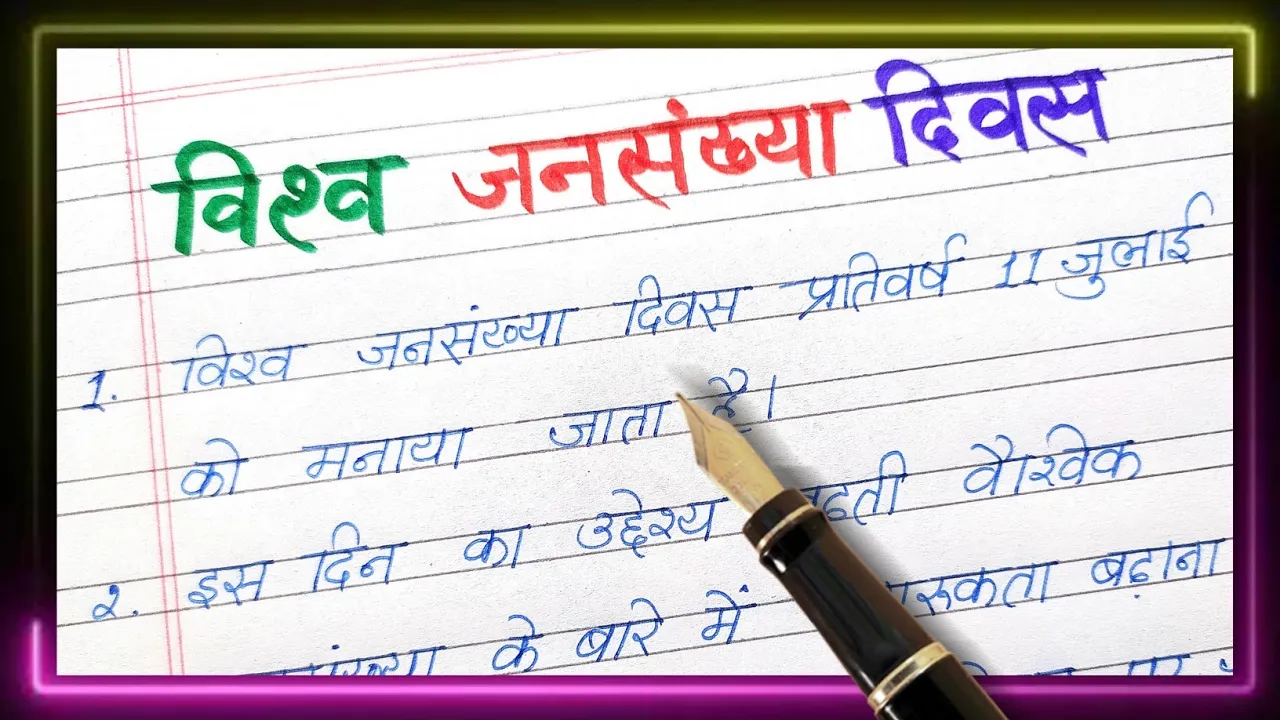 विश्व जनसंख्या दिवस
1. विश्व जनसंख्या दिवस प्रतिवर्ष 11 जुलाई
को मनाया जाता है।
२. इस दिन का उद्देश्य बढती वैश्विक
जनसंख्या के बारे में जागरूकता बढ़ाना